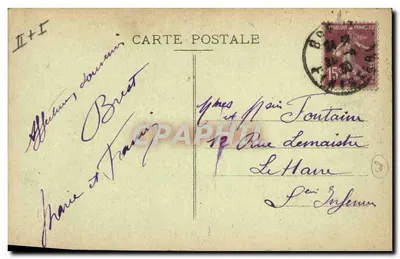 II + I
CARTE POSTALE
15
Affectueux souvenir
Brest
Marie et Francis
Mmes et Mr Fontaine
12 Rue Lemaistre
Le Havre
Sein Inférieure
CPAPHIL